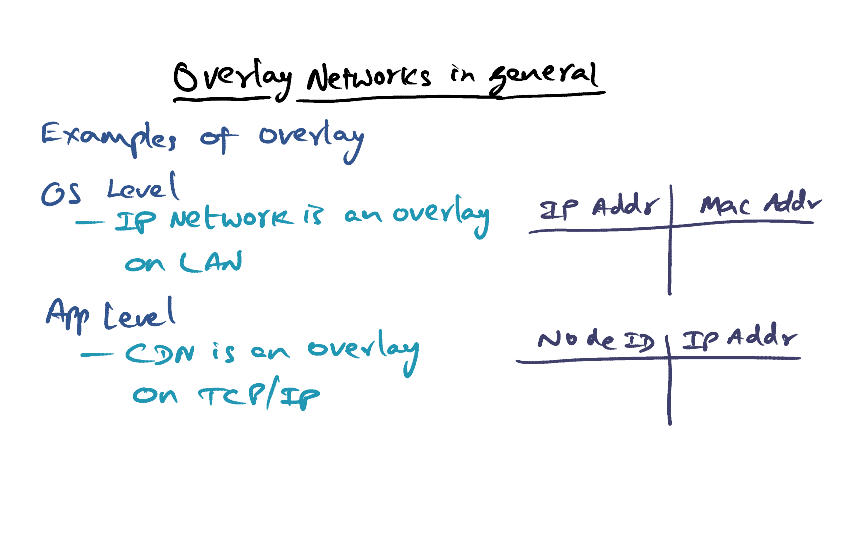 Overlay Networks in general
Examples of overlay
OS Level
— IP Network is an overlay
on LAN
IP Addr Mac Addr
App Level
— CDN is an overlay
on TCP/IP
Node ID IP Addr